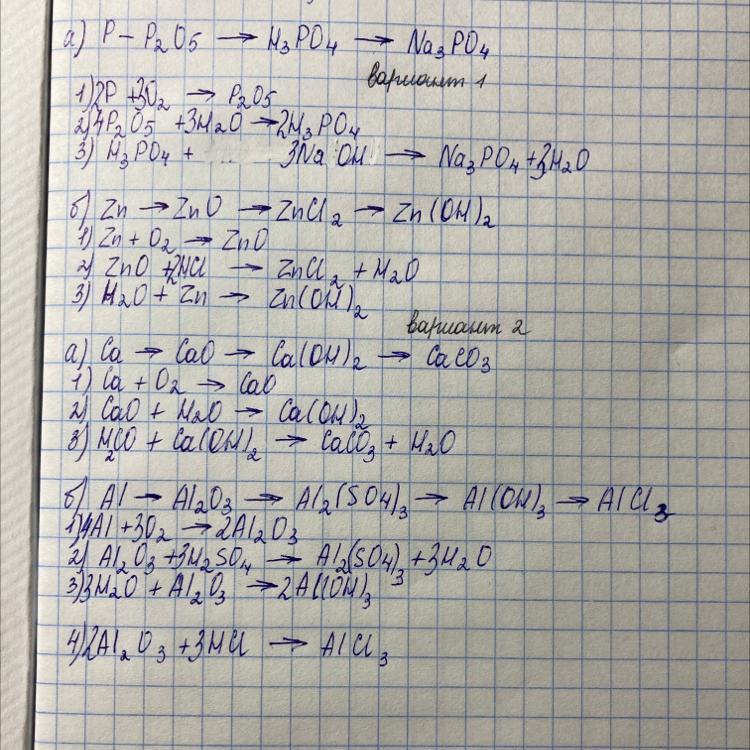 а) P – P₂O₅ → H₃PO₄ → Na₃PO₄
вариант 1
1) 2P + 3O₂ → P₂O₅
2) 4P₂O₅ + 3H₂O → 2H₃PO₄
3) H₃PO₄ + 3NaOH → Na₃PO₄ + 3H₂O
б) Zn → ZnO → ZnCl₂ → Zn(OH)₂
1) Zn + O₂ → ZnO
2) ZnO + 2HCl → ZnCl₂ + H₂O
3) H₂O + Zn → Zn(OH)₂
вариант 2
а) Ca → CaO → Ca(OH)₂ → CaCO₃
1) Ca + O₂ → CaO
2) CaO + H₂O → Ca(OH)₂
3) H₂CO + Ca(OH)₂ → CaCO₃ + H₂O
б) Al → Al₂O₃ → Al₂(SO₄)₃ → Al(OH)₃ → AlCl₃
1) 4Al + 3O₂ → 2Al₂O₃
2) Al₂O₃ + 3H₂SO₄ → Al₂(SO₄)₃ + 3H₂O
3) 3H₂O + Al₂O₃ → 2Al(OH)₃
4) 2Al₂O₃ + 3HCl → AlCl₃